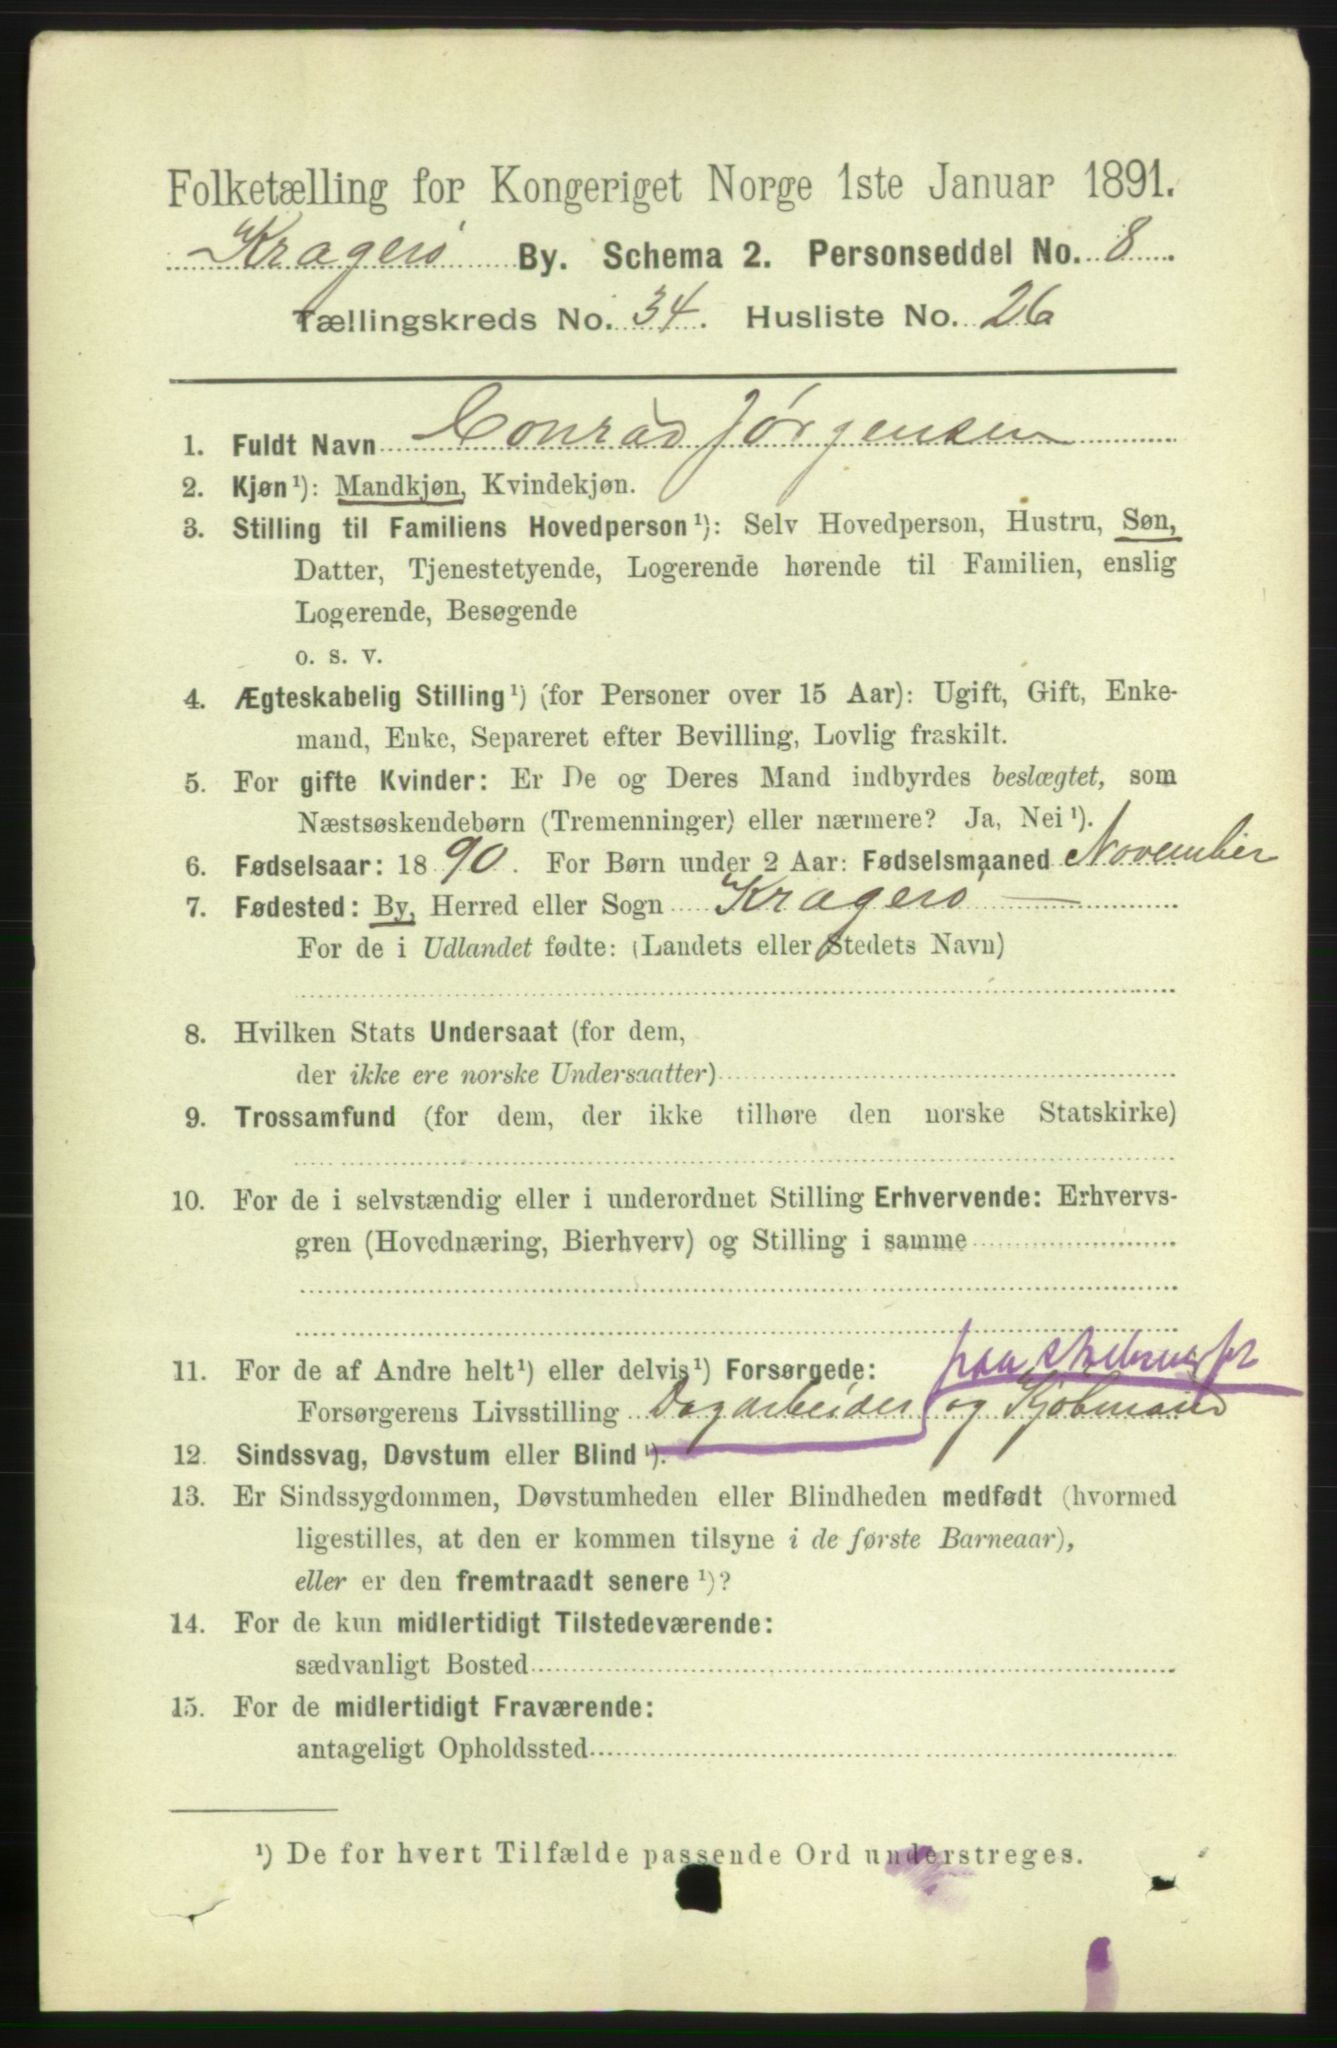 Folketælling for Kongeriget Norge 1ste Januar 1891.
Kragerø By. Schema 2. Personseddel No. 8.
Tællingskreds No. 34. Husliste No. 26
1. Fuldt Navn Conrad Jørgensen
2. Kjøn¹): Mandkjøn, Kvindekjøn.
3. Stilling til Familiens Hovedperson¹): Selv Hovedperson, Hustru, Søn,
Datter, Tjenestetyende, Logerende hørende til Familien, enslig
Logerende, Besøgende
o. s. v.
4. Ægteskabelig Stilling¹) (for Personer over 15 Aar): Ugift, Gift, Enke-
mand, Enke, Separeret efter Bevilling, Lovlig fraskilt.
5. For gifte Kvinder: Er De og Deres Mand indbyrdes beslægtet, som
Næstsøskendebørn (Tremenninger) eller nærmere? Ja, Nei¹).
6. Fødselsaar: 1890. For Børn under 2 Aar: Fødselsmaaned November
7. Fødested: By, Herred eller Sogn Kragerø
For de i Udlandet fødte: (Landets eller Stedets Navn)
8. Hvilken Stats Undersaat (for dem,
der ikke ere norske Undersaatter)
9. Trossamfund (for dem, der ikke tilhøre den norske Statskirke)
10. For de i selvstændig eller i underordnet Stilling Erhvervende: Erhvervs-
gren (Hovednæring, Bierhverv) og Stilling i samme
paa
11. For de af Andre helt¹) eller delvis¹) Forsørgede:
Forsørgerens Livsstilling Dagarbeider og Kjøbmand
12. Sindssvag, Døvstum eller Blind¹).
13. Er Sindssygdommen, Døvstumheden eller Blindheden medfødt (hvormed
ligestilles, at den er kommen tilsyne i de første Barneaar),
eller er den fremtraadt senere¹)?
14. For de kun midlertidigt Tilstedeværende:
sædvanligt Bosted
15. For de midlertidigt Fraværende:
antageligt Opholdssted
¹) De for hvert Tilfælde passende Ord understreges.